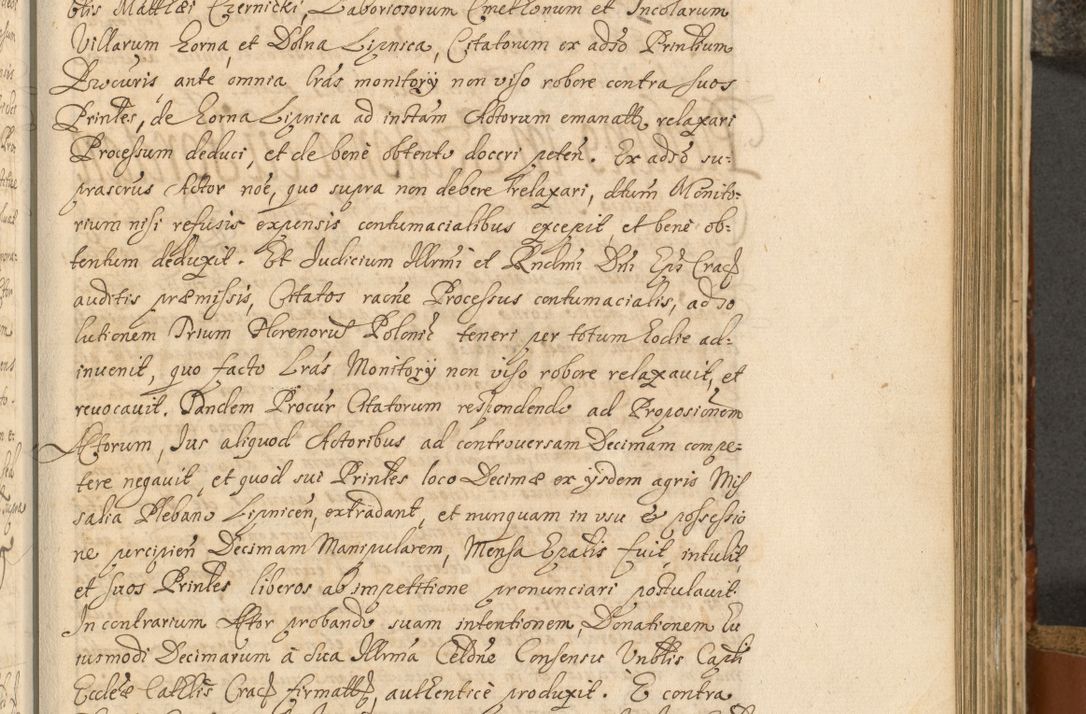 btis Matthæi Czernicki, Laboriosorum Cmethonum et Incolarum
Villarum Gorna, et Dolna Lipnica, Citatorum ex adso Printium
Procuris, ante omnia lrás monitorÿ non viso robore contra suos
Printes, de Gorna Lipnica ad instam Actorum emanatt, relaxari
Processum deduci, et de bene obtento doceri peteñ. Ex adso su:
prascrus Actor noe, quo supra non debere relaxari, dtum Monito:
rium nisi refusis expensis contumacialibus excepit et bene ob:
tentum deduxit. Et Judicium Illrmi et Rndmi Dni Epi Crac
auditis præmissis, Citatos raone Processus contumacialis, ad so
lutionem Trium Florenorū Polonic teneri per totum hodie ad:
invenit, quo facto Lrás Monitorÿ non viso robore relaxavit, et
revocavit. Tandem Procur Citatorum respondendo ad Proposionem
Actorum, Jus aliquod Actoribus ad controversam Decimam compe:
tere negavit, et quod sui Printes loco Decimæ ex ijsdem agris Mis
salia Plebano Lipniceñ, extradant, et nunquam in usu & possessio
ne percipieñ Decimam Manipularem, Mensa Epalis fuit, intulit,
et suos Printes liberos ab impetitione pronunciari postulavit.
In contrarium Actor probando suam intentionem, Donationem Eu
iusmodi Decimarum à Sua Illrma Celdne Consensu Vnblis Capli
Eccleæ Cathlis Crac firmatt, authentice produxit. E contra